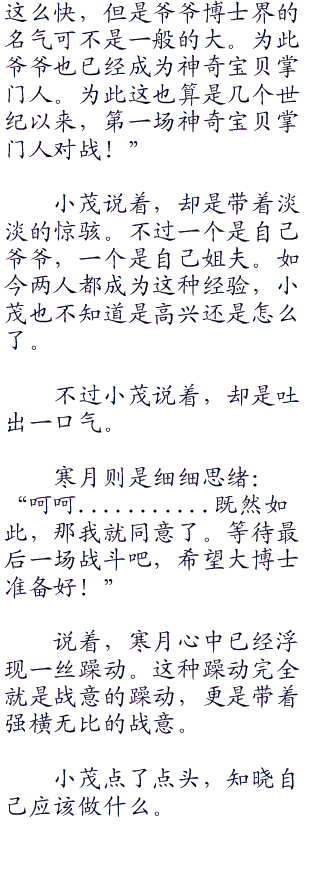 这么快，但是爷爷博士界的
名气可不是一般的大。为此
爷爷也已经成为神奇宝贝掌
门人。为此这也算是几个世
纪以来，第一场神奇宝贝掌
门人对战！”
小茂说着，却是带着淡
淡的惊骇。不过一个是自己
爷爷，一个是自己姐夫。如
今两人都成为这种经验，小
茂也不知道是高兴还是怎么
了。
不过小茂说着，却是吐
出一口气。
寒月则是细细思绪：
“呵呵...........既然如
此，那我就同意了。等待最
后一场战斗吧，希望大博士
准备好！”
说着，寒月心中已经浮
现一丝躁动。这种躁动完全
就是战意的躁动，更是带着
强横无比的战意。
小茂点了点头，知晓自
己应该做什么。